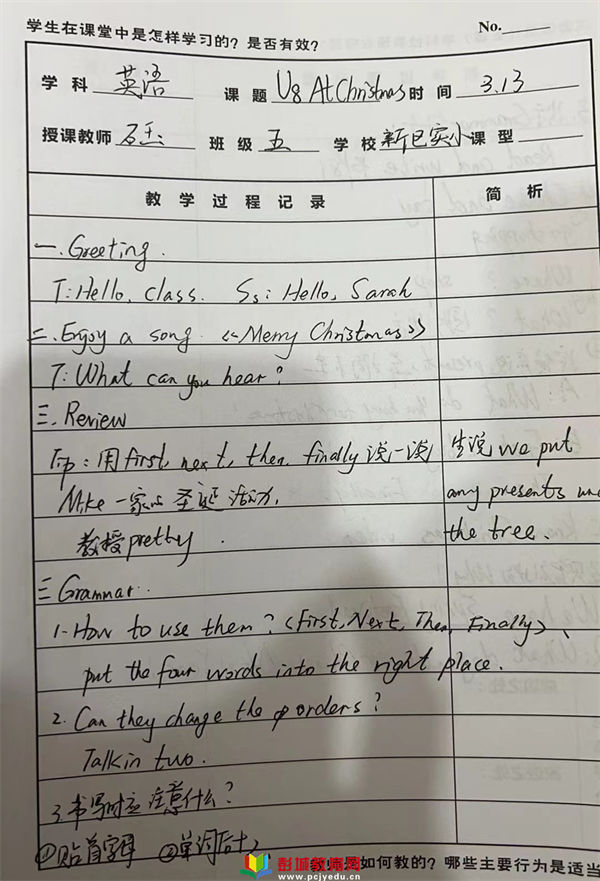 学生在课堂中是怎样学习的？是否有效？ No.
学 科 英语 课 题 U8 At Christmas 时 间 3.13
授课教师 班 级 五 学 校 新巴实小 课 型
教 学 过 程 记 录 简 析
一. Greeting.
T: Hello, class. Ss: Hello, Sarah
二. Enjoy a song. 《Merry Christmas》
T: What can you hear?
三. Review
Tip: 用first, next, then, finally 说一说 生说 we put
Mike 一家的圣诞活动. any presents
教授pretty. the tree.
三 Grammar.
1. How to use them? (First, Next, Then, Finally)、
put the four words into the right place.
2. Can they change the orders?
Talk in two.
3. 书写时应注意什么?
① 首字母 ②单词后
彭城教师网
www.pcjyedu.cn
教师是如何教的？哪些主要行为是适当